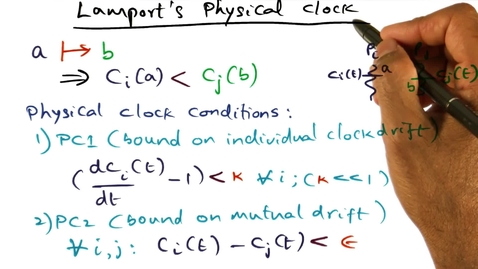 Lamport's Physical clock
a ↦ b
⇒ Ci(a) < Cj(b)
Ci(t) a
b Cj(t)
Physical clock conditions:
1) PC1 (bound on individual clock drift)
(dCi(t)/dt - 1) < K ∀i; (K << 1)
2) PC2 (bound on mutual drift)
∀i,j: Ci(t) - Cj(t) < ε